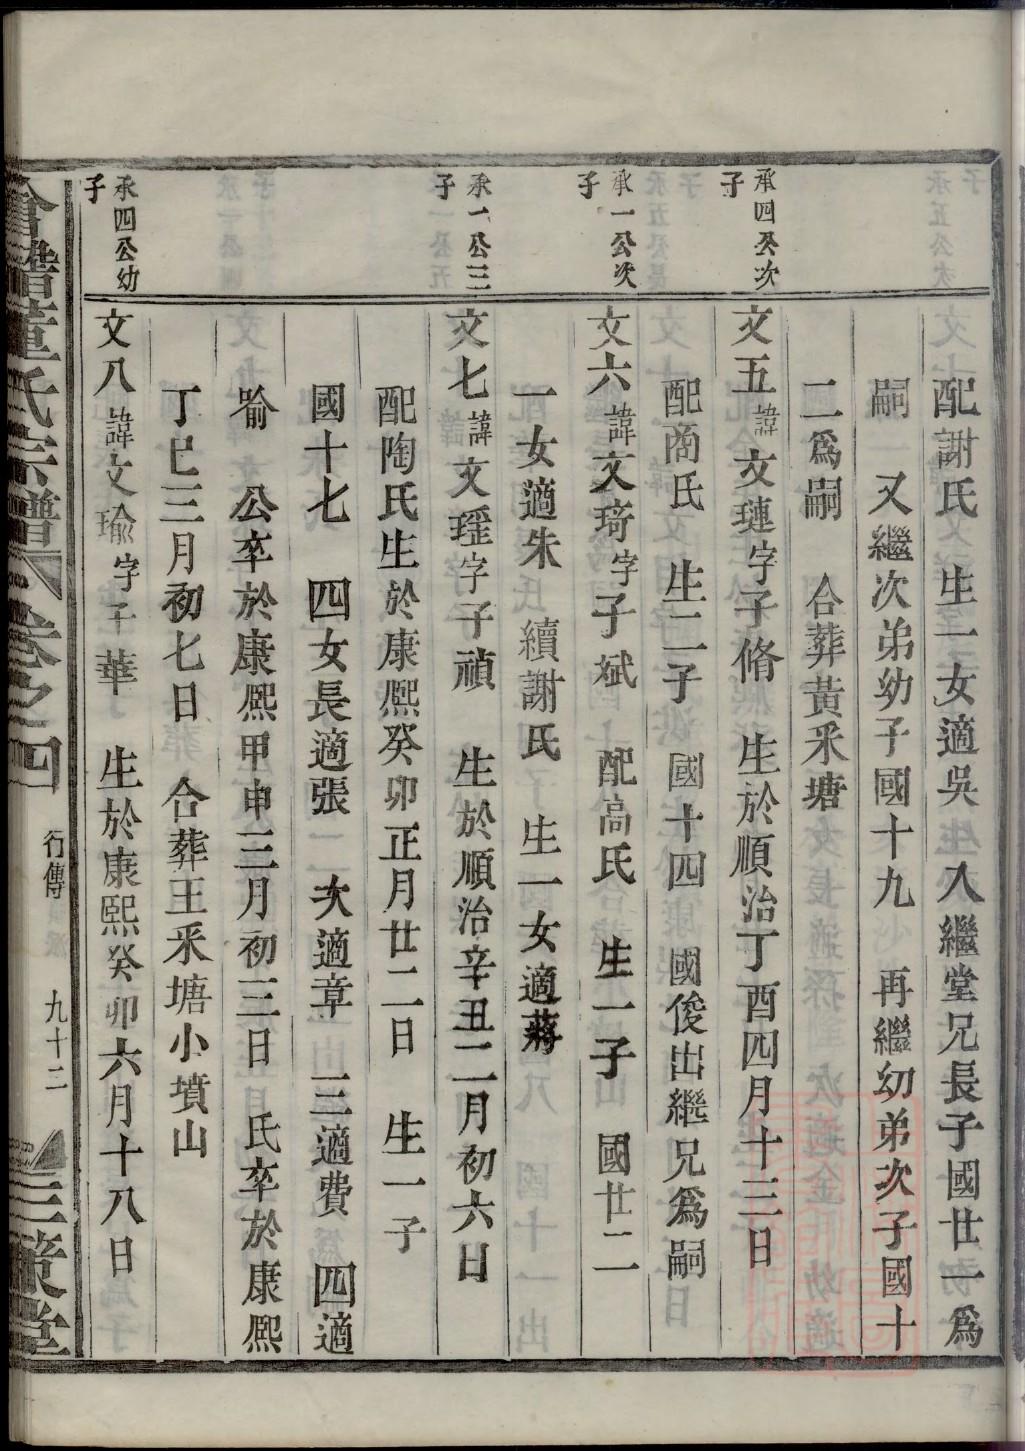 配謝氏　生一女適吳　入繼堂兄長子國廿一爲
嗣　又繼次弟幼子國十九　再繼幼弟次子國十
二爲嗣　合葬黃釆塘
承四公次子
文五諱文璉字子脩　生於順治丁酉四月十三日
配商氏　生二子　國十四　國俊出繼兄爲嗣
承一公次子
文六諱文琦字子斌　配高氏　生一子　國廿二
一女適朱　續謝氏　生一女適蔣
承一公三子
文七諱文瑆字子禎　生於順治辛丑二月初六日
配陶氏生於康熙癸卯正月廿二日　生一子
國十七　四女長適張　次適章　三適費　四適
喻　公卒於康熙甲申三月初三日　氏卒於康熙
丁巳三月初七日　合葬王釆塘小墳山
承四公幼子
文八諱文瑜字子華　生於康熙癸卯六月十八日
會譜董氏宗譜　卷之四　行傳　九十三　三策堂